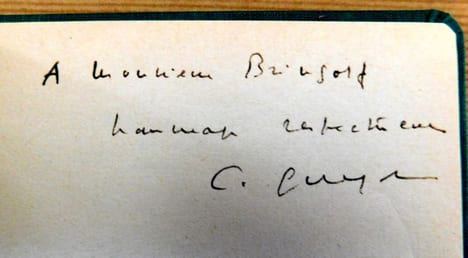 A Monsieur Bringolf
hommage respectueux
C.